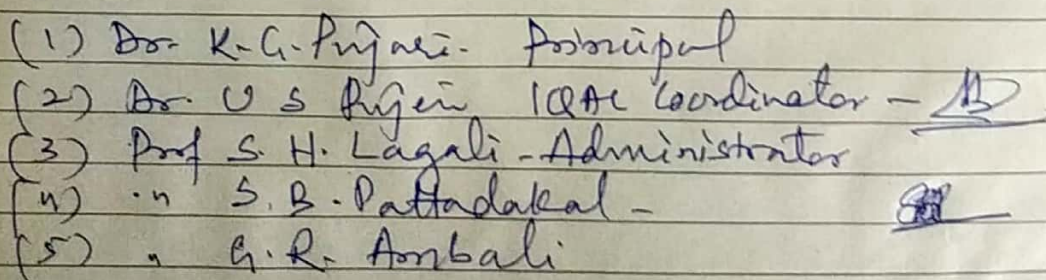 (1) Dr. K. G. Pujari - Principal
(2) Dr. U S Pujari IQAC Coordinator -
(3) Prof S. H. Lagali - Administrator
(4) " S. B. Pattadakal -
(5) " G. R. Ambali